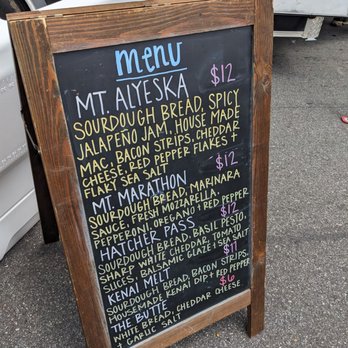 menu
MT. ALYESKA $12
SOURDOUGH BREAD, SPICY
JALAPEÑO JAM, HOUSE MADE
MAC, BACON STRIPS, CHEDDAR
CHEESE, RED PEPPER FLAKES +
FLAKY SEA SALT
MT. MARATHON $12
SOURDOUGH BREAD, MARINARA
SAUCE, FRESH MOZZARELLA,
PEPPERONI, OREGANO + RED PEPPER
HATCHER PASS $12
SOURDOUGH BREAD, BASIL PESTO,
SHARP WHITE CHEDDAR, TOMATO
SLICES, BALSAMIC GLAZE + SEA SALT
KENAI MELT $11
SOURDOUGH BREAD, BACON STRIPS,
HOUSEMADE KENAI DIP + RED PEPPER
THE BUTTE $6
WHITE BREAD, CHEDDAR CHEESE
+ GARLIC SALT